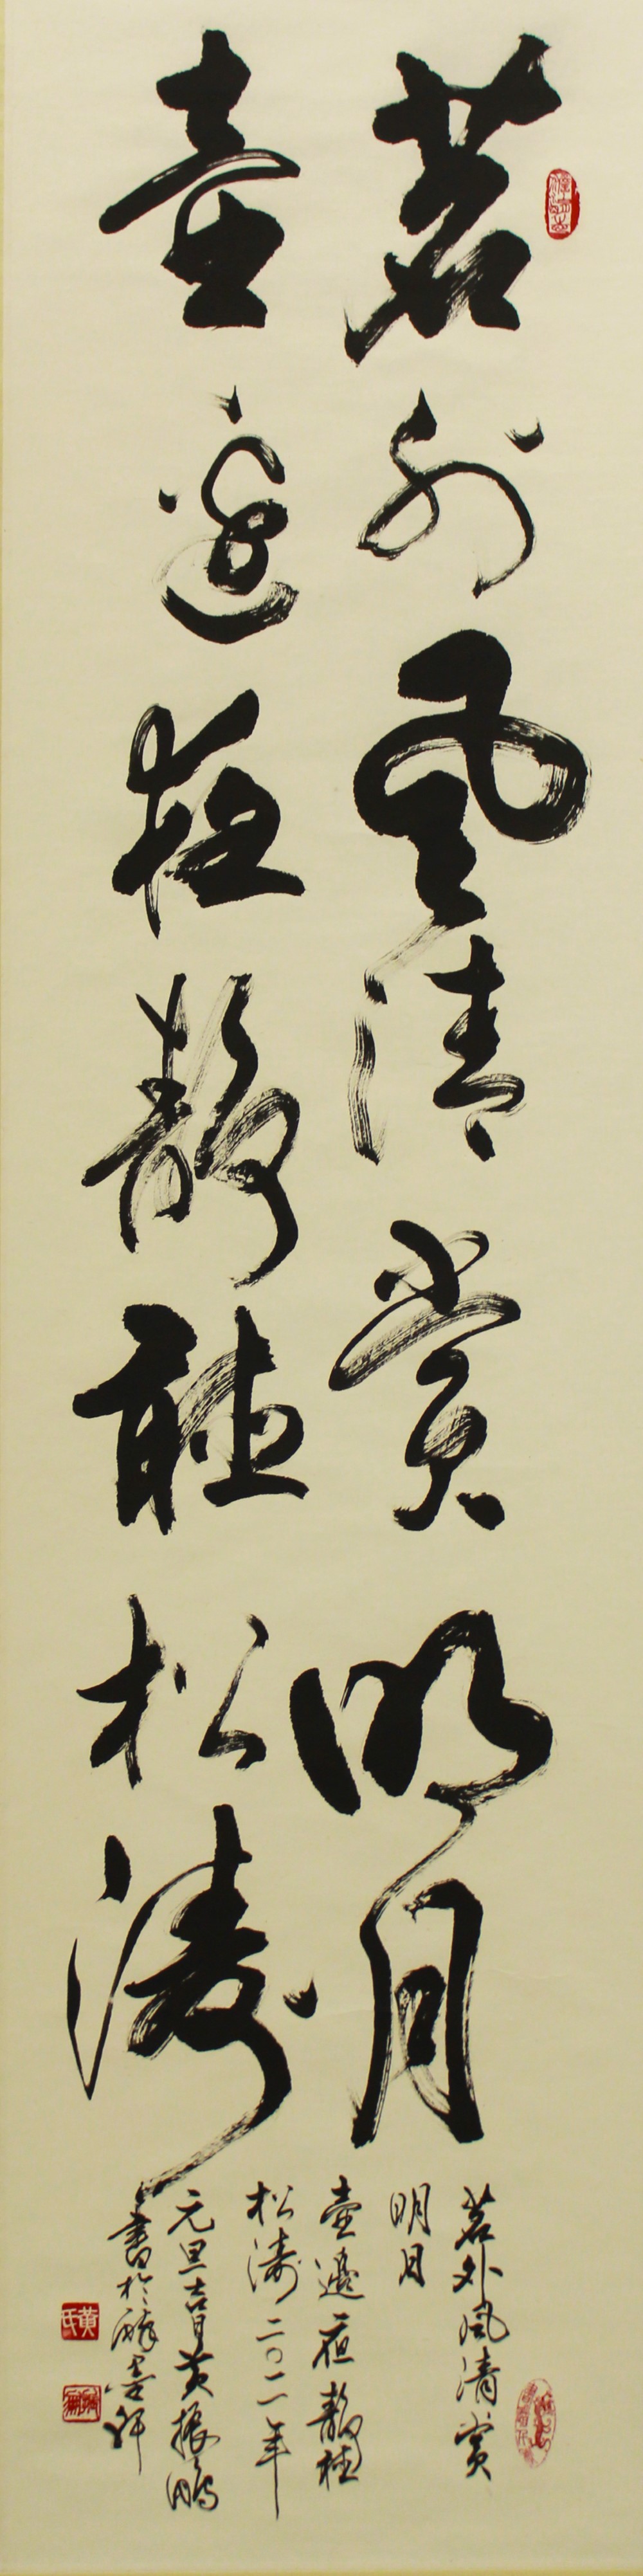 茗外風清賞明月
壺邊夜靜聽松濤
茗外風清賞
明月
壺邊夜靜聽
松濤二〇二一年
元旦吉日黄振鵬
書於醉墨軒
黄氏